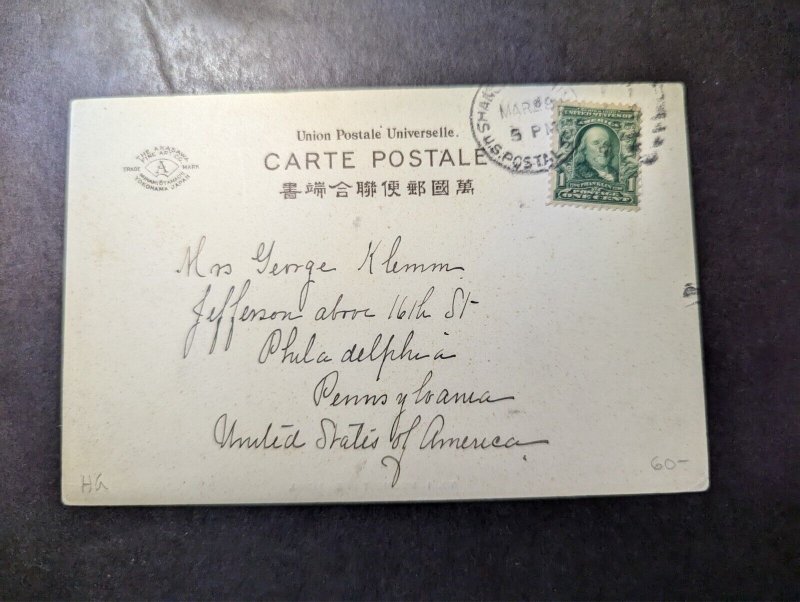 Union Postale Universelle.
CARTE POSTALE
書端合聯便郵國萬
THE ARAKAWA
FINE ART CO.
TRADE A MARK
YOKOHAMA JAPAN
MAR 29
5 PM
U.S. POSTAL
UNITED STATES OF
AMERICA
1
ONE CENT
Mrs George Klemm
Jefferson above 16th St
Philadelphia
Pennsylvania
United States of America
HG
60-